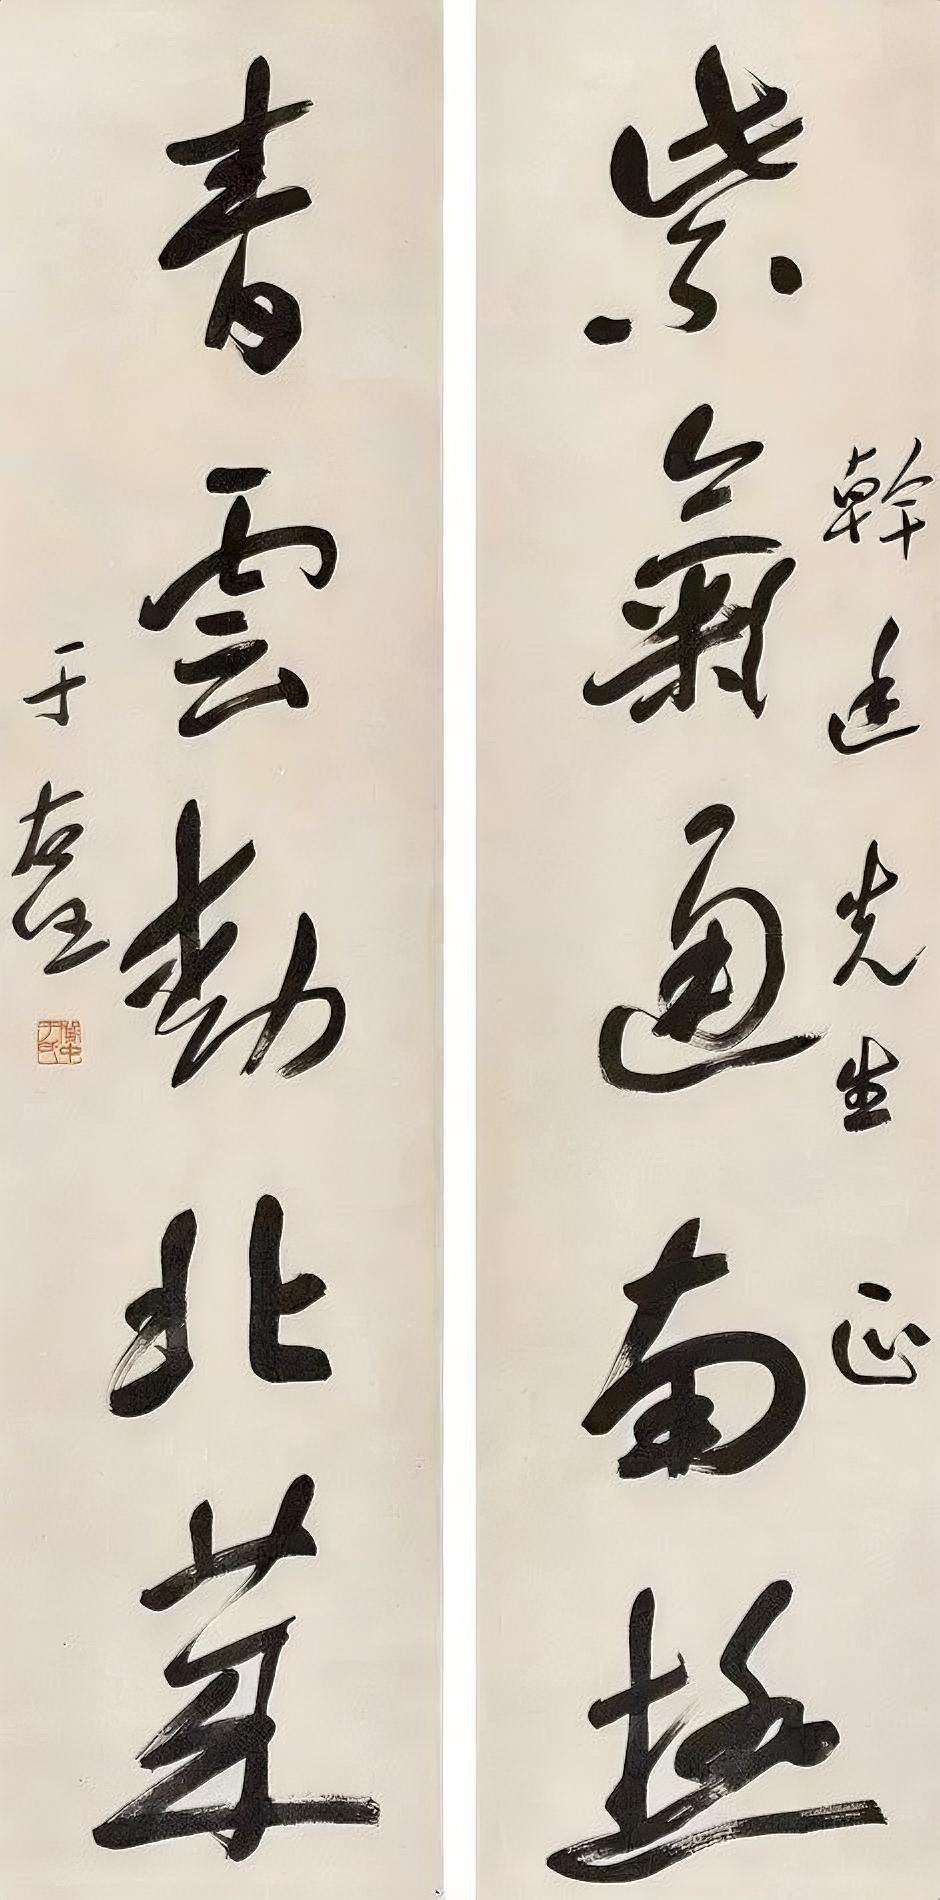 幹廷先生正
紫氣通南極
青雲動北
于右任
關中于氏